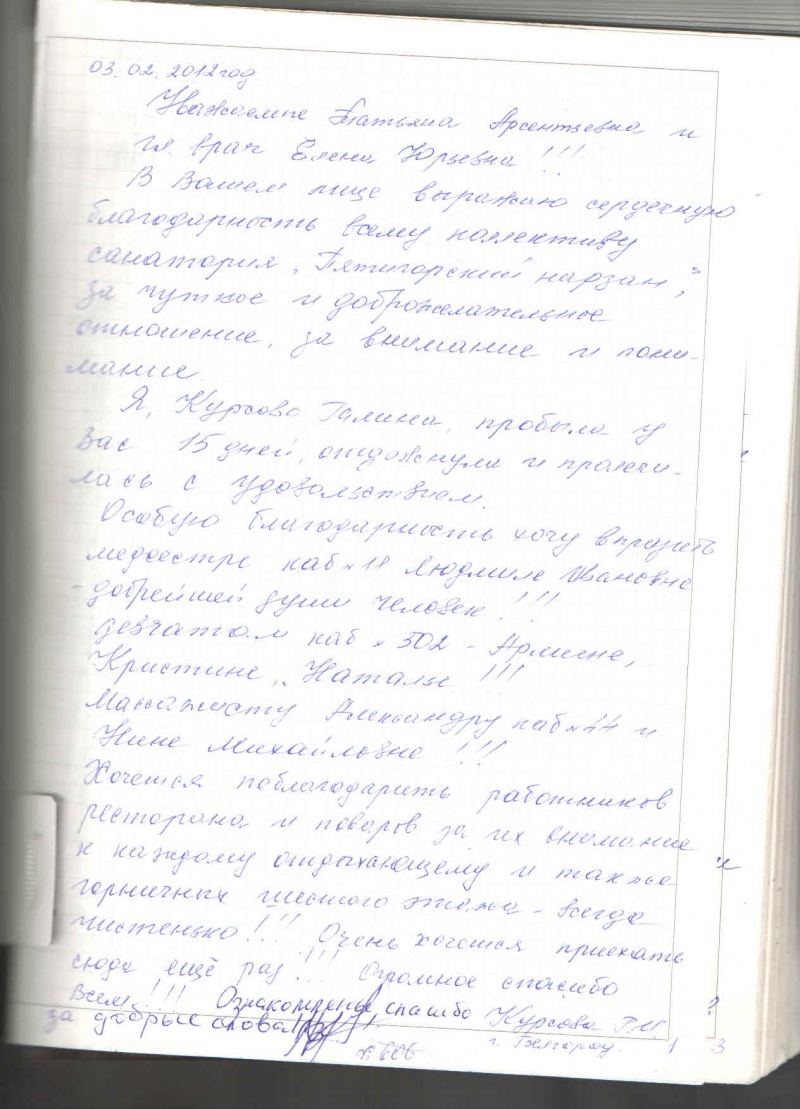 03.02.2012год
Уважаемые Татьяна Арсентьевна и
гл. врач Елена Юрьевна!!!
В Вашем лице выражаю сердечную
благодарность всему коллективу
санатория „Пятигорский нарзан",
за чуткое и доброжелательное
отношение, за внимание и пони-
мание.
Я, Курсова Галина, пробыла у
Вас 15 дней, отдохнула и пролечи-
лась с удовольствием.
Особую благодарность хочу выразить
медсестре каб №18 Людмиле Ивановне
- добрейшей души человек!!!
девчатам каб № 502 - Армине,
Кристине, Наталье !!!
Массажисту Александру каб №44 и
Нине Михайловне !!!
Хочется поблагодарить работников
ресторана и поваров за их внимание
к каждому отдыхающему и также
горничных шестого этажа - всегда
чистенько!!! Очень хочется приехать
сюда ещё раз!!! Огромное спасибо
Всем!!! Ознакомлены, спасибо Курсова Г.И.
за добрые слова!
№ 606 г. Белгород. 1 3